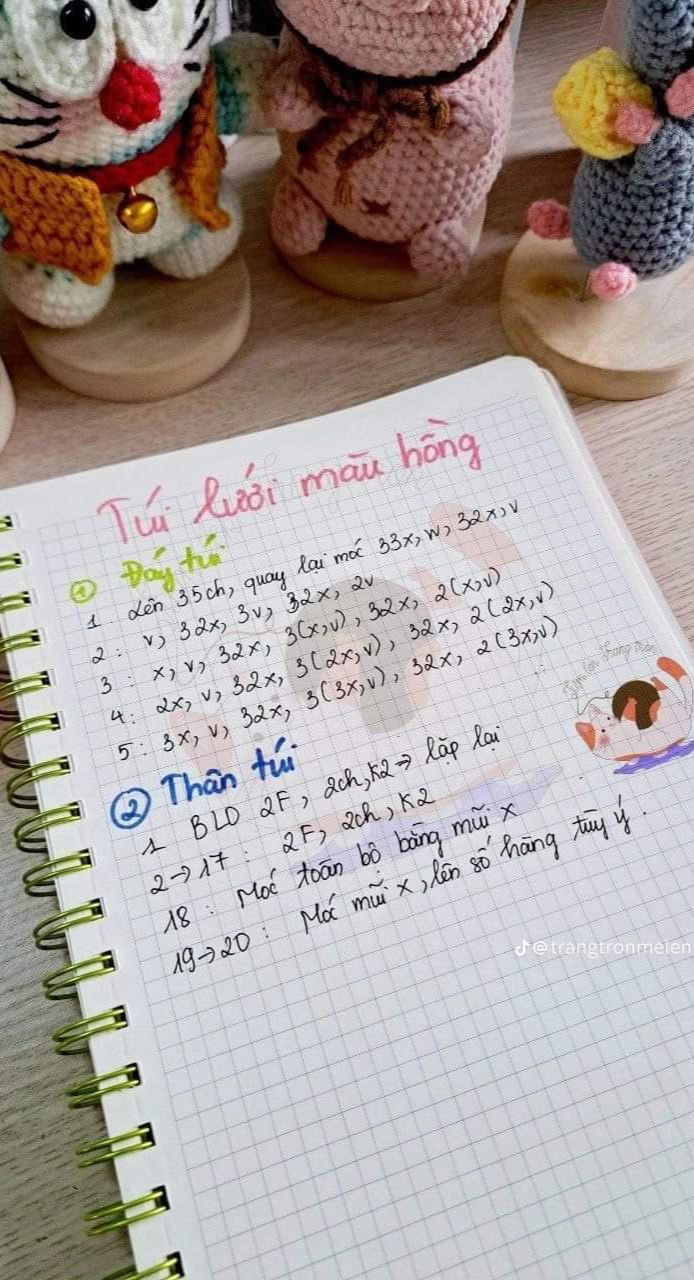 Túi lưới màu hồng
① Đáy túi
1 Lên 35ch, quay lại móc 33x, w, 32x, v
2 : v, 32x, 3v, 32x, 2v
3 : x, v, 32x, 3(x,v), 32x, 2(x,v)
4 : 2x, v, 32x, 3(2x,v), 32x, 2(2x,v)
5 : 3x, v, 32x, 3(3x,v), 32x, 2(3x,v)
② Thân túi
1 BLO 2F, 2ch, K2 → lặp lại
2→17 : 2F, 2ch, K2
18 : Móc toàn bộ bằng mũi x
19→20 : Móc mũi x, lên số hàng tùy ý.
@trangtronmelen